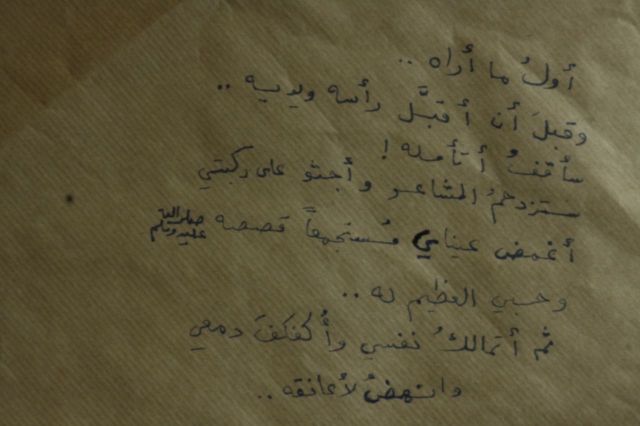 أولُ ما أراه ..
وقبلَ أن أقبَّل رأسه ويديه ..
سأقفُ أتأمله !
ستزدحمُ المشاعر وأجثو على ركبتي
أغمض عيناي مُستجمعاً قصصه صلى الله عليه وسلم
وحبي العظيم له ..
ثم أتمالكُ نفسي وأُكفكفَ دمعي
وانهضُ لأعانقه ..